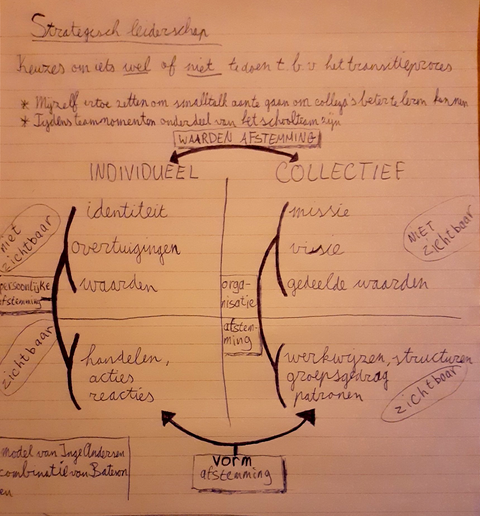 Strategisch leiderschap
Keuzes om iets wel of niet te doen t.b.v het transitieproces
* Mijzelf ertoe zetten om smalltalk aan te gaan om collega's beter te leren kennen
* Tijdens teammomenten onderdeel van het schoolteam zijn
WAARDEN AFSTEMMING
INDIVIDUEEL
COLLECTIEF
niet zichtbaar
identiteit
overtuigingen
waarden
missie
visie
gedeelde waarden
NIET zichtbaar
persoonlijke
afstemming
orga-
nisatie
afstem-
ming
zichtbaar
handelen,
acties
reacties
werkwijzen, structuren
groepsgedrag
patronen
zichtbaar
vorm
afstemming
model van Inge Andersen
combinatie van Bateson
en